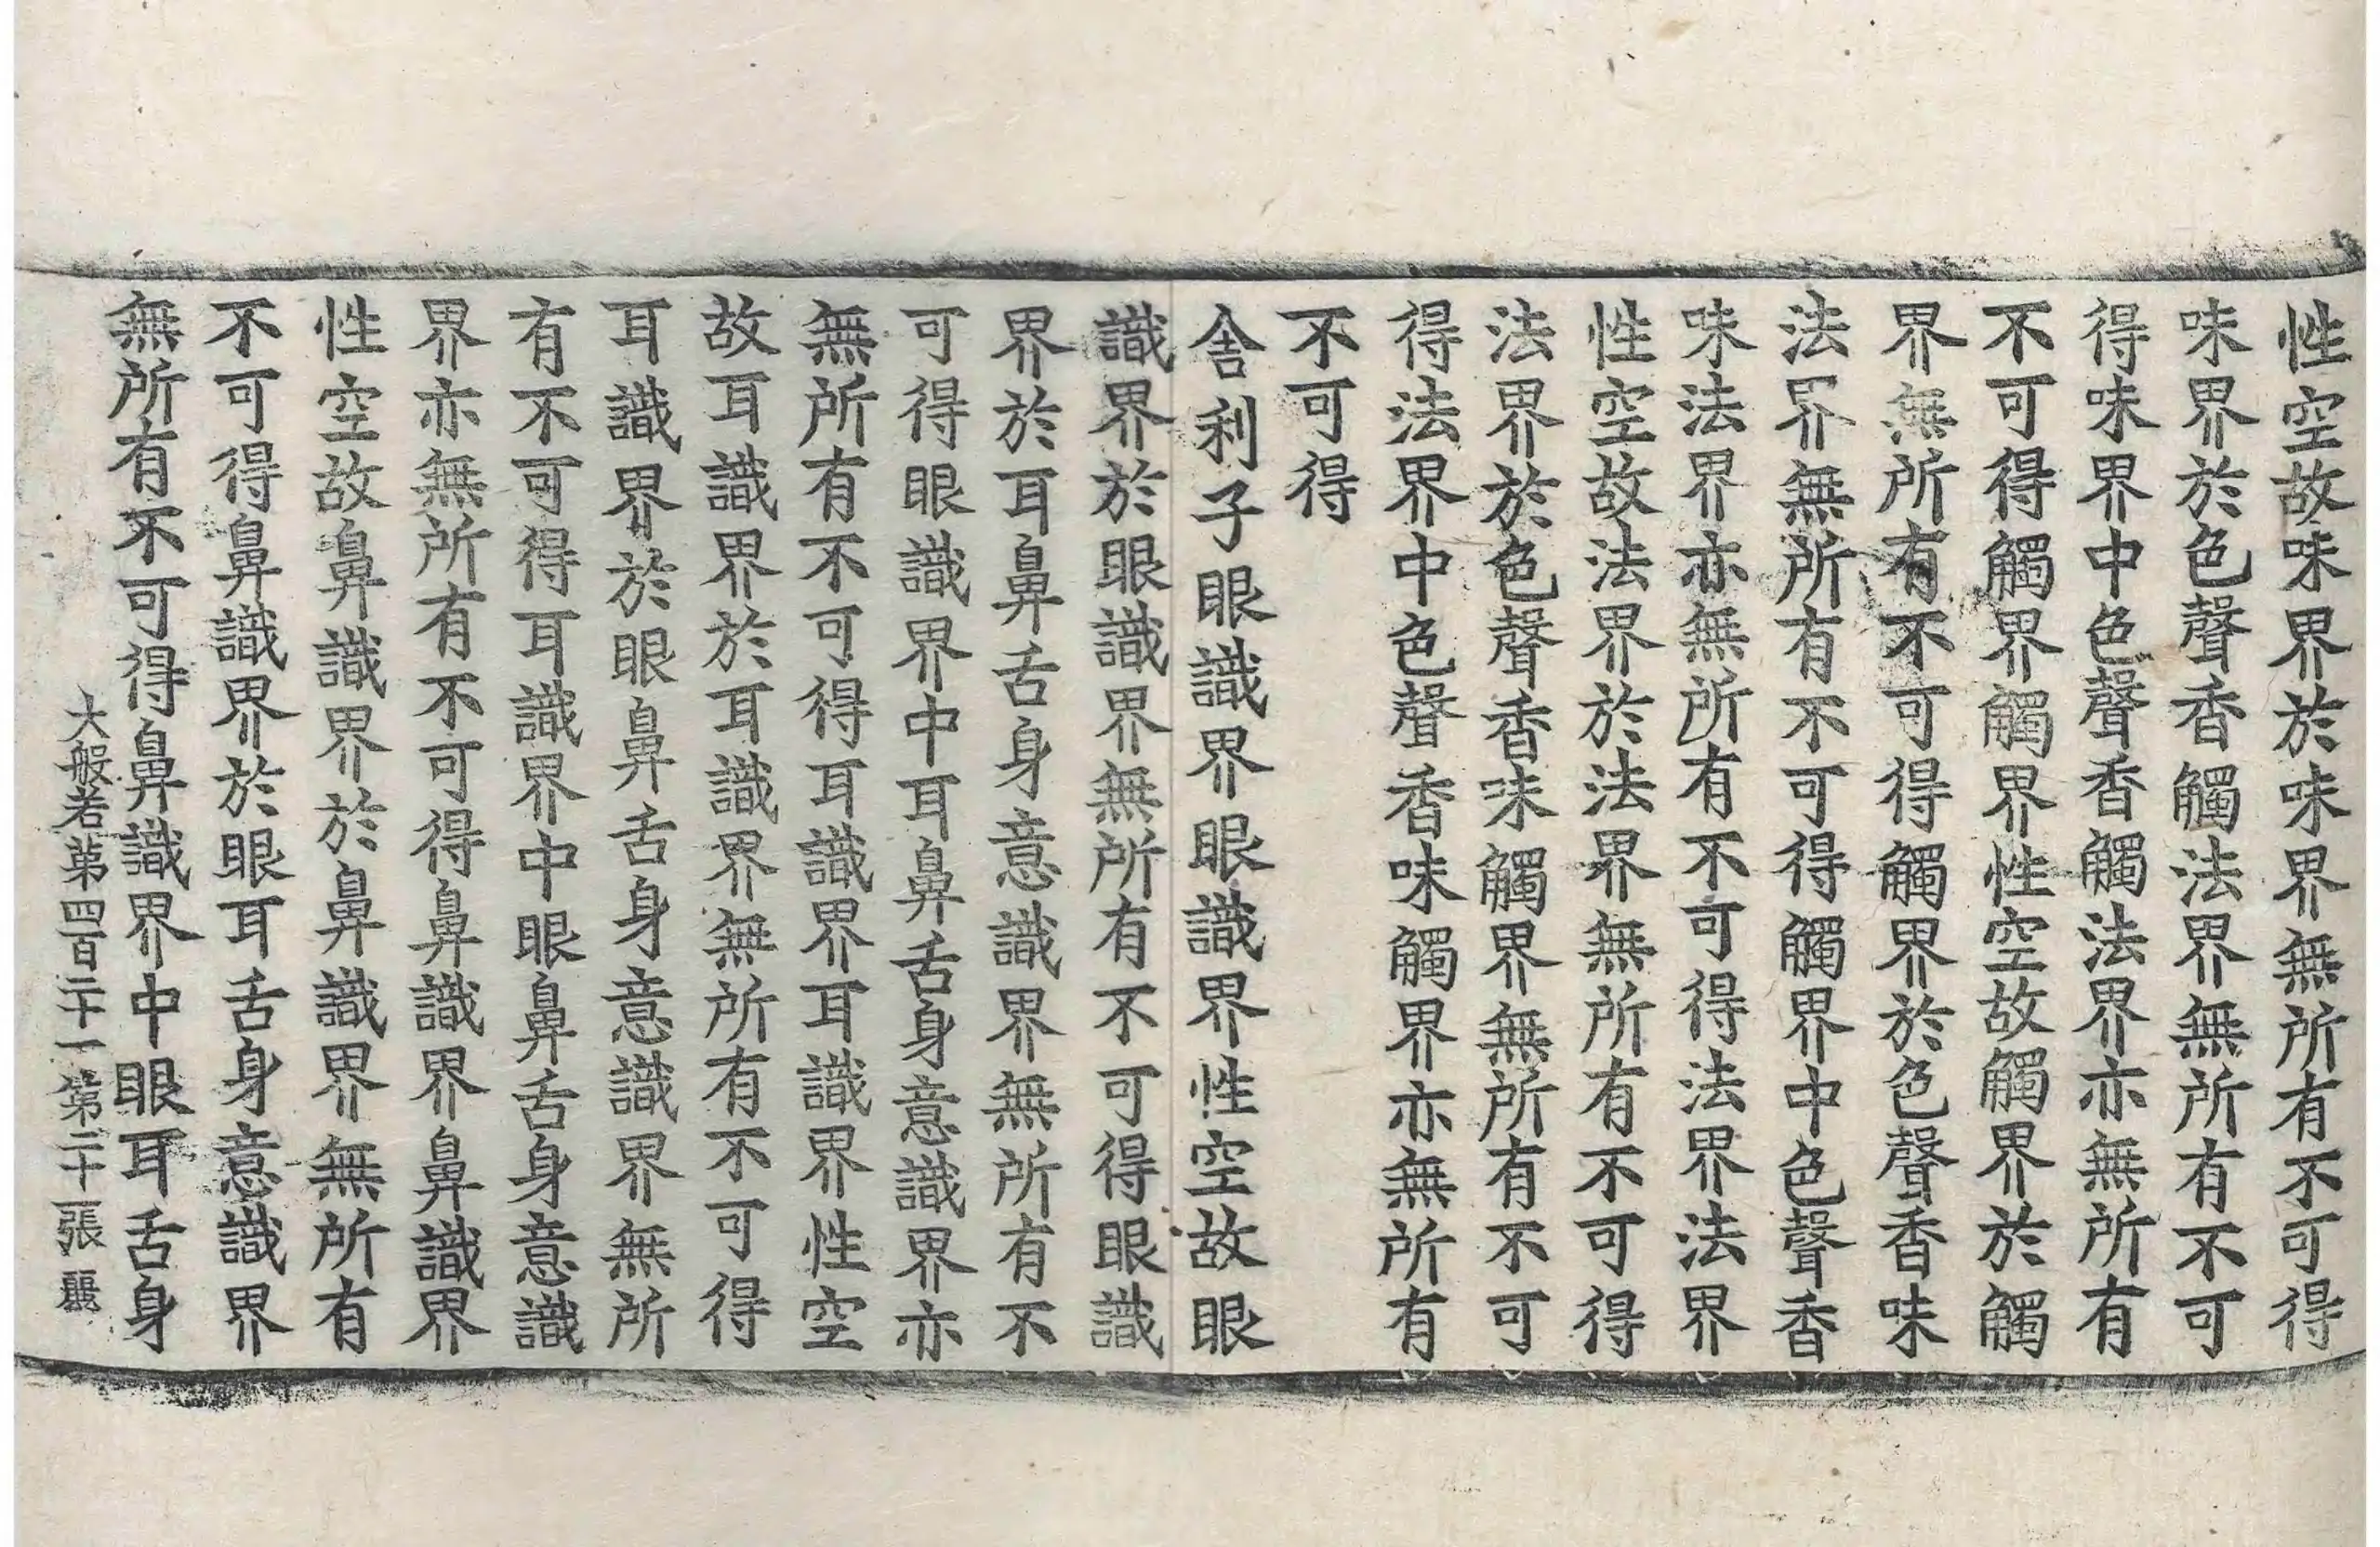 性空故味界於味界無所有不可得
味界於色聲香觸法界無所有不可
得味界中色聲香觸法界亦無所有
不可得觸界觸界性空故觸界於觸
界無所有不可得觸界於色聲香味
法界無所有不可得觸界中色聲香
味法界亦無所有不可得法界法界
性空故法界於法界無所有不可得
法界於色聲香味觸界無所有不可
得法界中色聲香味觸界亦無所有
不可得
舍利子眼識界眼識界性空故眼
識界於眼識界無所有不可得眼識
界於耳鼻舌身意識界無所有不
可得眼識界中耳鼻舌身意識界亦
無所有不可得耳識界耳識界性空
故耳識界於耳識界無所有不可得
耳識界於眼鼻舌身意識界無所
有不可得耳識界中眼鼻舌身意識
界亦無所有不可得鼻識界鼻識界
性空故鼻識界於鼻識界無所有
不可得鼻識界於眼耳舌身意識界
無所有不可得鼻識界中眼耳舌身
大般若第四百二十一第二十張 麗